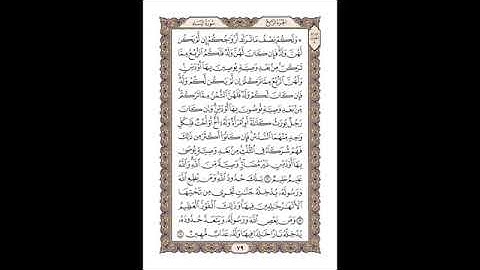 سورة النساء
الجزء الرابع
۞ وَلَكُمْ نِصْفُ مَا تَرَكَ أَزْوَاجُكُمْ إِن لَّمْ يَكُن
لَّهُنَّ وَلَدٌ فَإِن كَانَ لَهُنَّ وَلَدٌ فَلَكُمُ الرُّبُعُ مِمَّا
تَرَكْنَ مِن بَعْدِ وَصِيَّةٍ يُوصِينَ بِهَا أَوْ دَيْنٍ
وَلَهُنَّ الرُّبُعُ مِمَّا تَرَكْتُمْ إِن لَّمْ يَكُن لَّكُمْ وَلَدٌ
فَإِن كَانَ لَكُمْ وَلَدٌ فَلَهُنَّ الثُّمُنُ مِمَّا تَرَكْتُم
مِّن بَعْدِ وَصِيَّةٍ تُوصُونَ بِهَا أَوْ دَيْنٍ وَإِن كَانَ
رَجُلٌ يُورَثُ كَلَالَةً أَوِ امْرَأَةٌ وَلَهُ أَخٌ أَوْ أُخْتٌ فَلِكُلِّ
وَاحِدٍ مِّنْهُمَا السُّدُسُ فَإِن كَانُوا أَكْثَرَ مِن ذَٰلِكَ
فَهُمْ شُرَكَاءُ فِي الثُّلُثِ مِن بَعْدِ وَصِيَّةٍ يُوصَىٰ
بِهَا أَوْ دَيْنٍ غَيْرَ مُضَارٍّ وَصِيَّةً مِّنَ اللَّهِ وَاللَّهُ
عَلِيمٌ حَلِيمٌ ۝١٢ تِلْكَ حُدُودُ اللَّهِ وَمَن يُطِعِ اللَّهَ
وَرَسُولَهُ يُدْخِلْهُ جَنَّاتٍ تَجْرِي مِن تَحْتِهَا
الْأَنْهَارُ خَالِدِينَ فِيهَا وَذَٰلِكَ الْفَوْزُ الْعَظِيمُ
۝١٣ وَمَن يَعْصِ اللَّهَ وَرَسُولَهُ وَيَتَعَدَّ حُدُودَهُ
يُدْخِلْهُ نَارًا خَالِدًا فِيهَا وَلَهُ عَذَابٌ مُّهِينٌ ۝١٤
٧٩